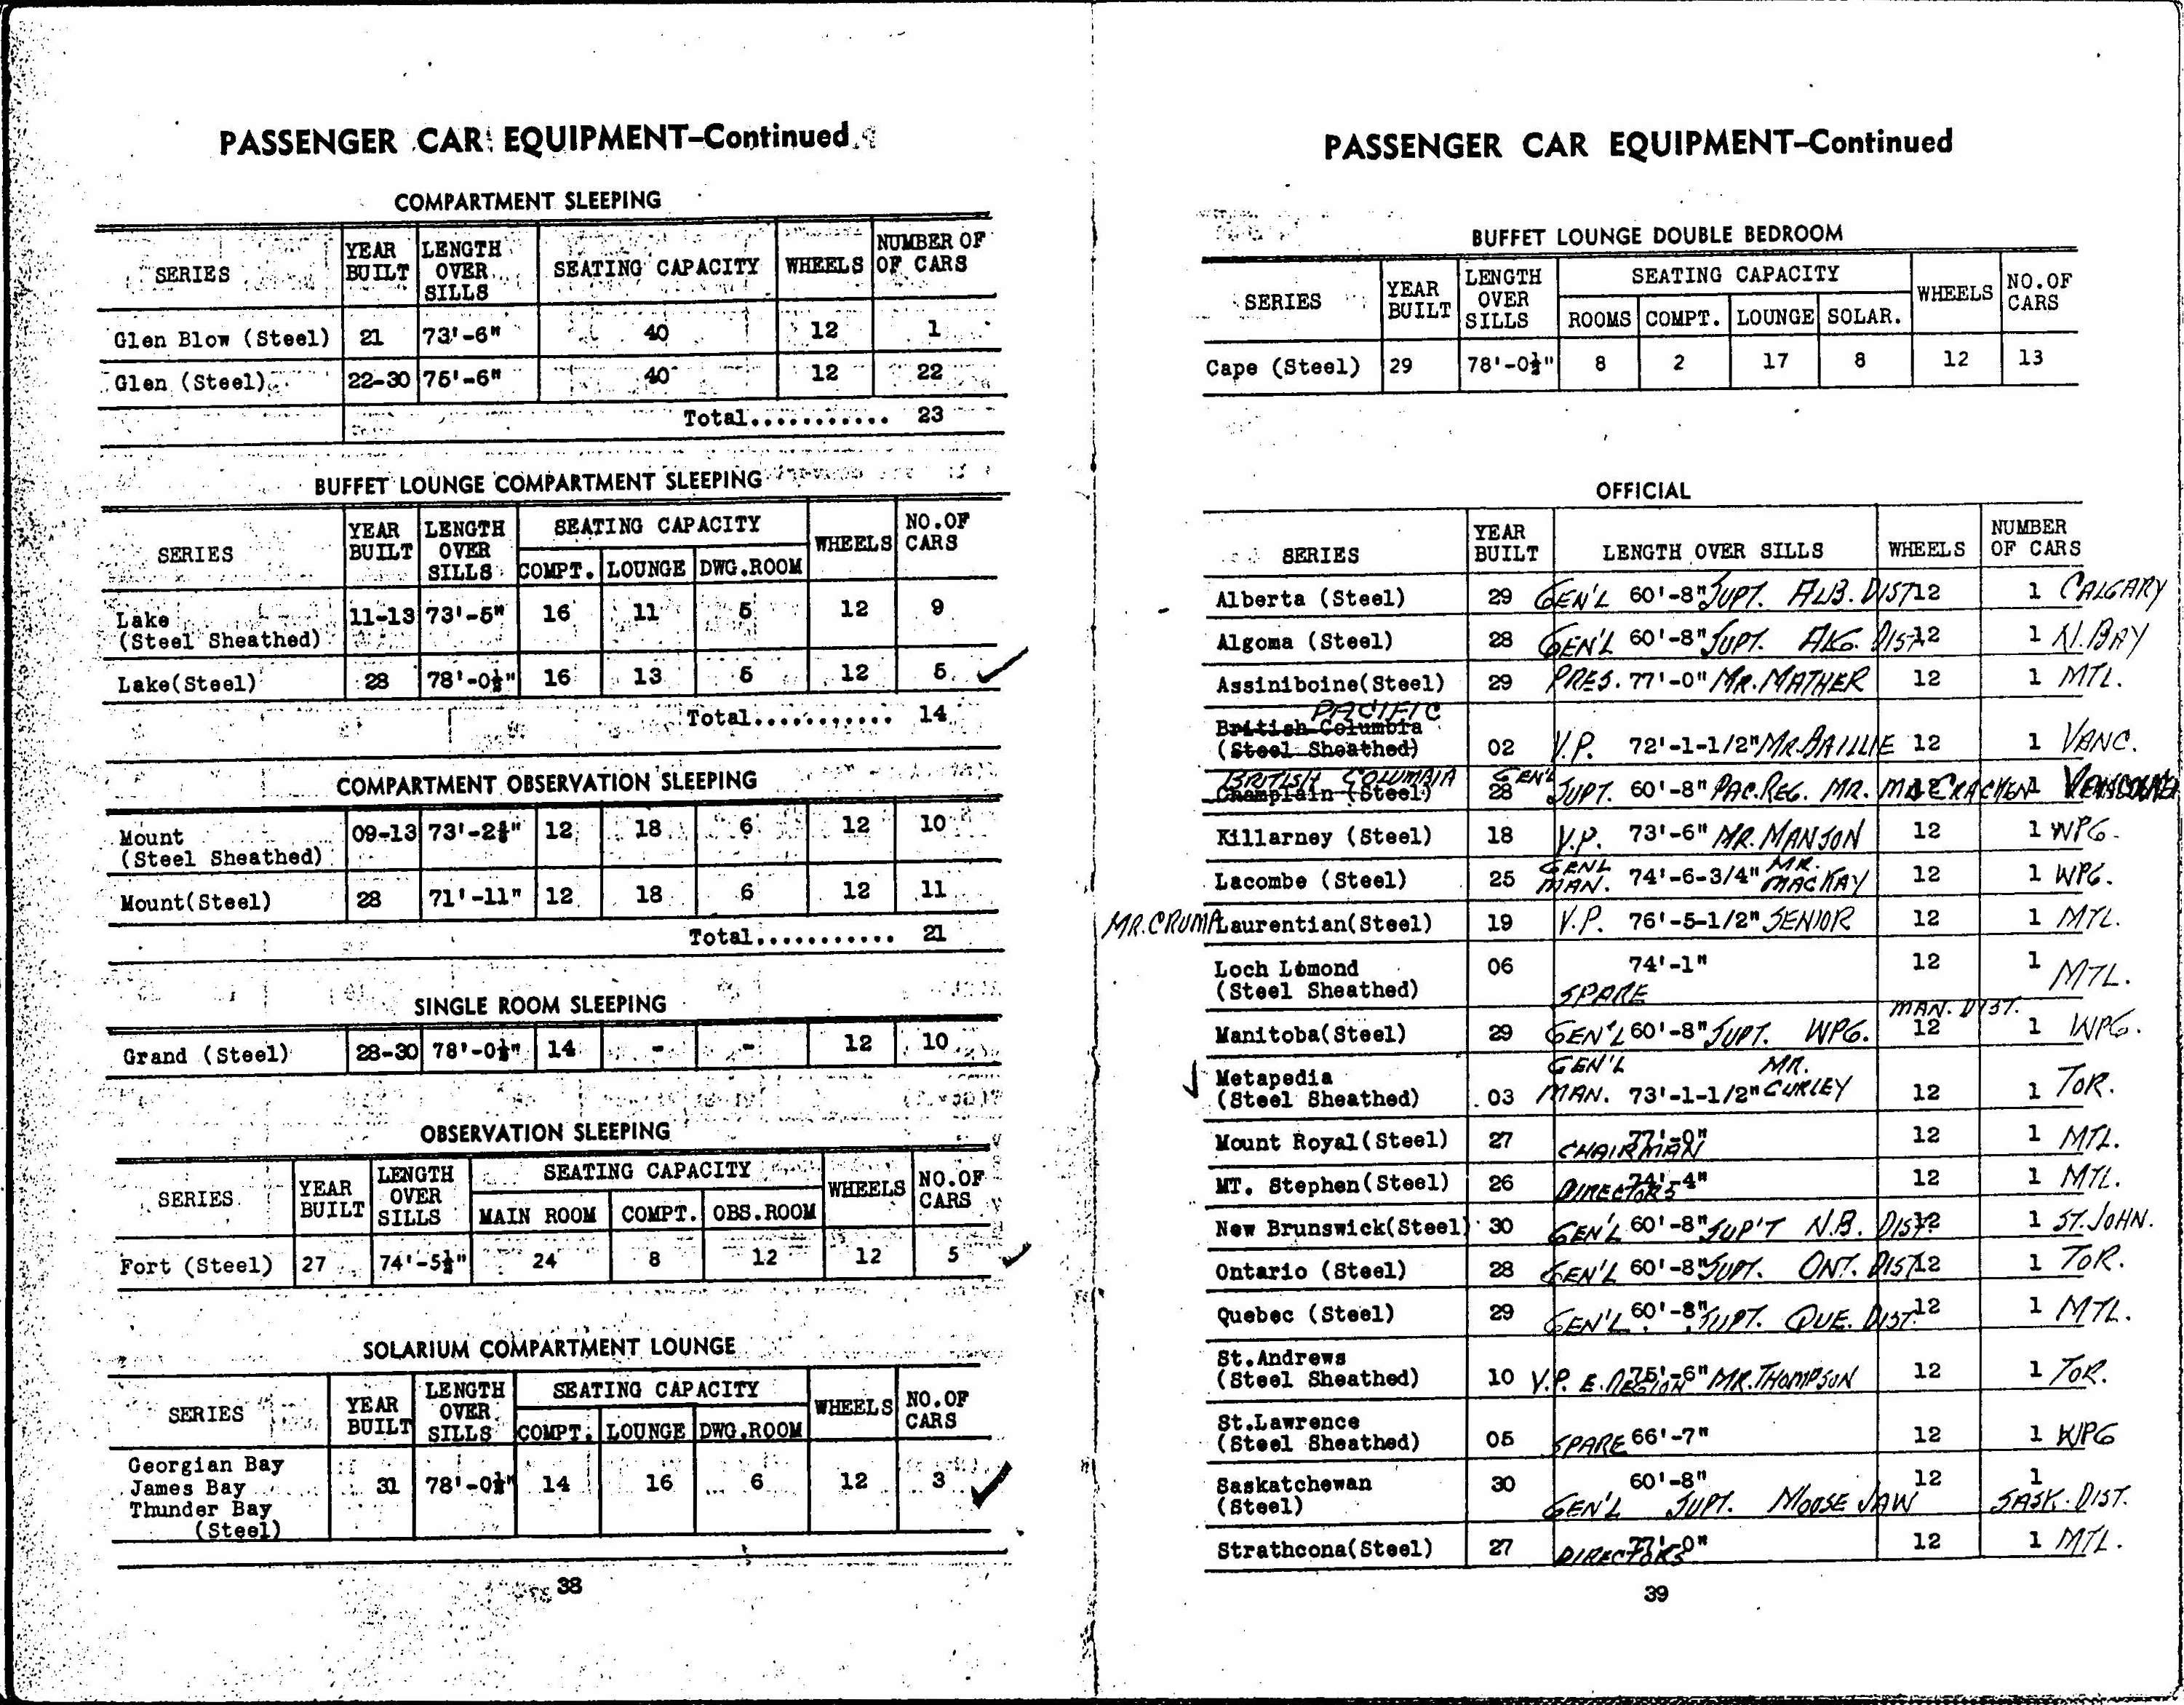 PASSENGER CAR EQUIPMENT-Continued
COMPARTMENT SLEEPING
SERIES YEAR BUILT LENGTH OVER SILLS SEATING CAPACITY WHEELS NUMBER OF OF CARS
Glen Blow (Steel) 21 73'-6" 40 12 1
Glen (Steel) 22-30 75'-6" 40 12 22
Total........... 23
BUFFET LOUNGE COMPARTMENT SLEEPING
SERIES YEAR BUILT LENGTH OVER SILLS SEATING CAPACITY COMPT. LOUNGE DWG.ROOM WHEELS NO.OF CARS
Lake (Steel Sheathed) 11-13 73'-5" 16 11 5 12 9
Lake(Steel) 28 78'-0½" 16 13 5 12 5 ✓
Total........... 14
COMPARTMENT OBSERVATION SLEEPING
Mount (Steel Sheathed) 09-13 12 18 6 12 10
Mount(Steel) 28 71'-11" 12 18 6 12 11
Total........... 21
SINGLE ROOM SLEEPING
Grand (Steel) 28-30 78'-0½" 14 - - 12 10
OBSERVATION SLEEPING
SERIES YEAR BUILT LENGTH OVER SILLS SEATING CAPACITY MAIN ROOM COMPT. OBS.ROOM WHEELS NO.OF CARS
Fort (Steel) 27 74'-5½" 24 8 12 12 5 ✓
SOLARIUM COMPARTMENT LOUNGE
SERIES YEAR BUILT LENGTH OVER SILLS SEATING CAPACITY COMPT. LOUNGE DWG.ROOM WHEELS NO.OF CARS
Georgian Bay
James Bay 31 78'-0½" 14 16 6 12 3 ✓
Thunder Bay
(Steel)
38
PASSENGER CAR EQUIPMENT-Continued
BUFFET LOUNGE DOUBLE BEDROOM
SERIES YEAR BUILT LENGTH OVER SILLS SEATING CAPACITY ROOMS COMPT. LOUNGE SOLAR. WHEELS NO.OF CARS
Cape (Steel) 29 78'-0½" 8 2 17 8 12 13
OFFICIAL
SERIES YEAR BUILT LENGTH OVER SILLS WHEELS NUMBER OF CARS
Alberta (Steel) 29 GEN'L 60'-8" SUPT. ALB. DIST 12 1 CALGARY
Algoma (Steel) 28 GEN'L 60'-8" SUPT. ALG. DIST 12 1 N. BAY
Assiniboine(Steel) 29 PRES. 77'-0" MR. MATHER 12 1 MTL.
PACIFIC
British Columbia
(Steel Sheathed) 02 V.P. 72'-1-1/2" MR. BAILLIE 12 1 VANC.
BRITISH COLUMBIA GEN'L
Champlain (Steel) 28 SUPT. 60'-8" PAC. REG. MR. MACCRACKEN 1 VANCOUVER
Killarney (Steel) 18 V.P. 73'-6" MR. MANSON 12 1 WPG.
Lacombe (Steel) 25 GENL MAN. 74'-6-3/4" MR. MACKAY 12 1 WPG.
MR. CRUMP Laurentian(Steel) 19 V.P. 76'-5-1/2" SENIOR 12 1 MTL.
Loch Lomond 06 74'-1" 12 1 MTL.
(Steel Sheathed) SPARE
MAN. DIST.
Manitoba(Steel) 29 GEN'L 60'-8" SUPT. WPG. 12 1 WPG.
✓ Metapedia GEN'L MR.
(Steel Sheathed) 03 MAN. 73'-1-1/2" CURLEY 12 1 TOR.
Mount Royal(Steel) 27 77'-0" CHAIRMAN 12 1 MTL.
MT. Stephen(Steel) 26 74'-4" DIRECTORS 12 1 MTL.
New Brunswick(Steel) 30 GEN'L 60'-8" SUP'T N.B. DIST. 12 1 ST. JOHN.
Ontario (Steel) 28 GEN'L 60'-8" SUPT. ONT. DIST 12 1 TOR.
Quebec (Steel) 29 GEN'L 60'-8" SUPT. QUE. DIST. 12 1 MTL.
St.Andrews
(Steel Sheathed) 10 V.P. E. REGION 75'-6" MR. THOMPSON 12 1 TOR.
St.Lawrence
(Steel Sheathed) 05 SPARE 66'-7" 12 1 WPG
Saskatchewan 30 60'-8" 12 1
(Steel) GEN'L SUPT. MOOSE JAW SASK. DIST.
Strathcona(Steel) 27 77'-0" DIRECTORS 12 1 MTL.
39